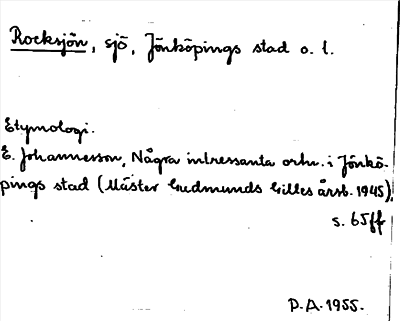 Rocksjön, sjö, Jönköpings stad o. l.
Etymologi.
E. Johannesson, Några intressanta ortn. i Jönkö-
pings stad (Mäster Gudmunds Gilles årsb. 1945),
s. 65ff
P.A. 1955.